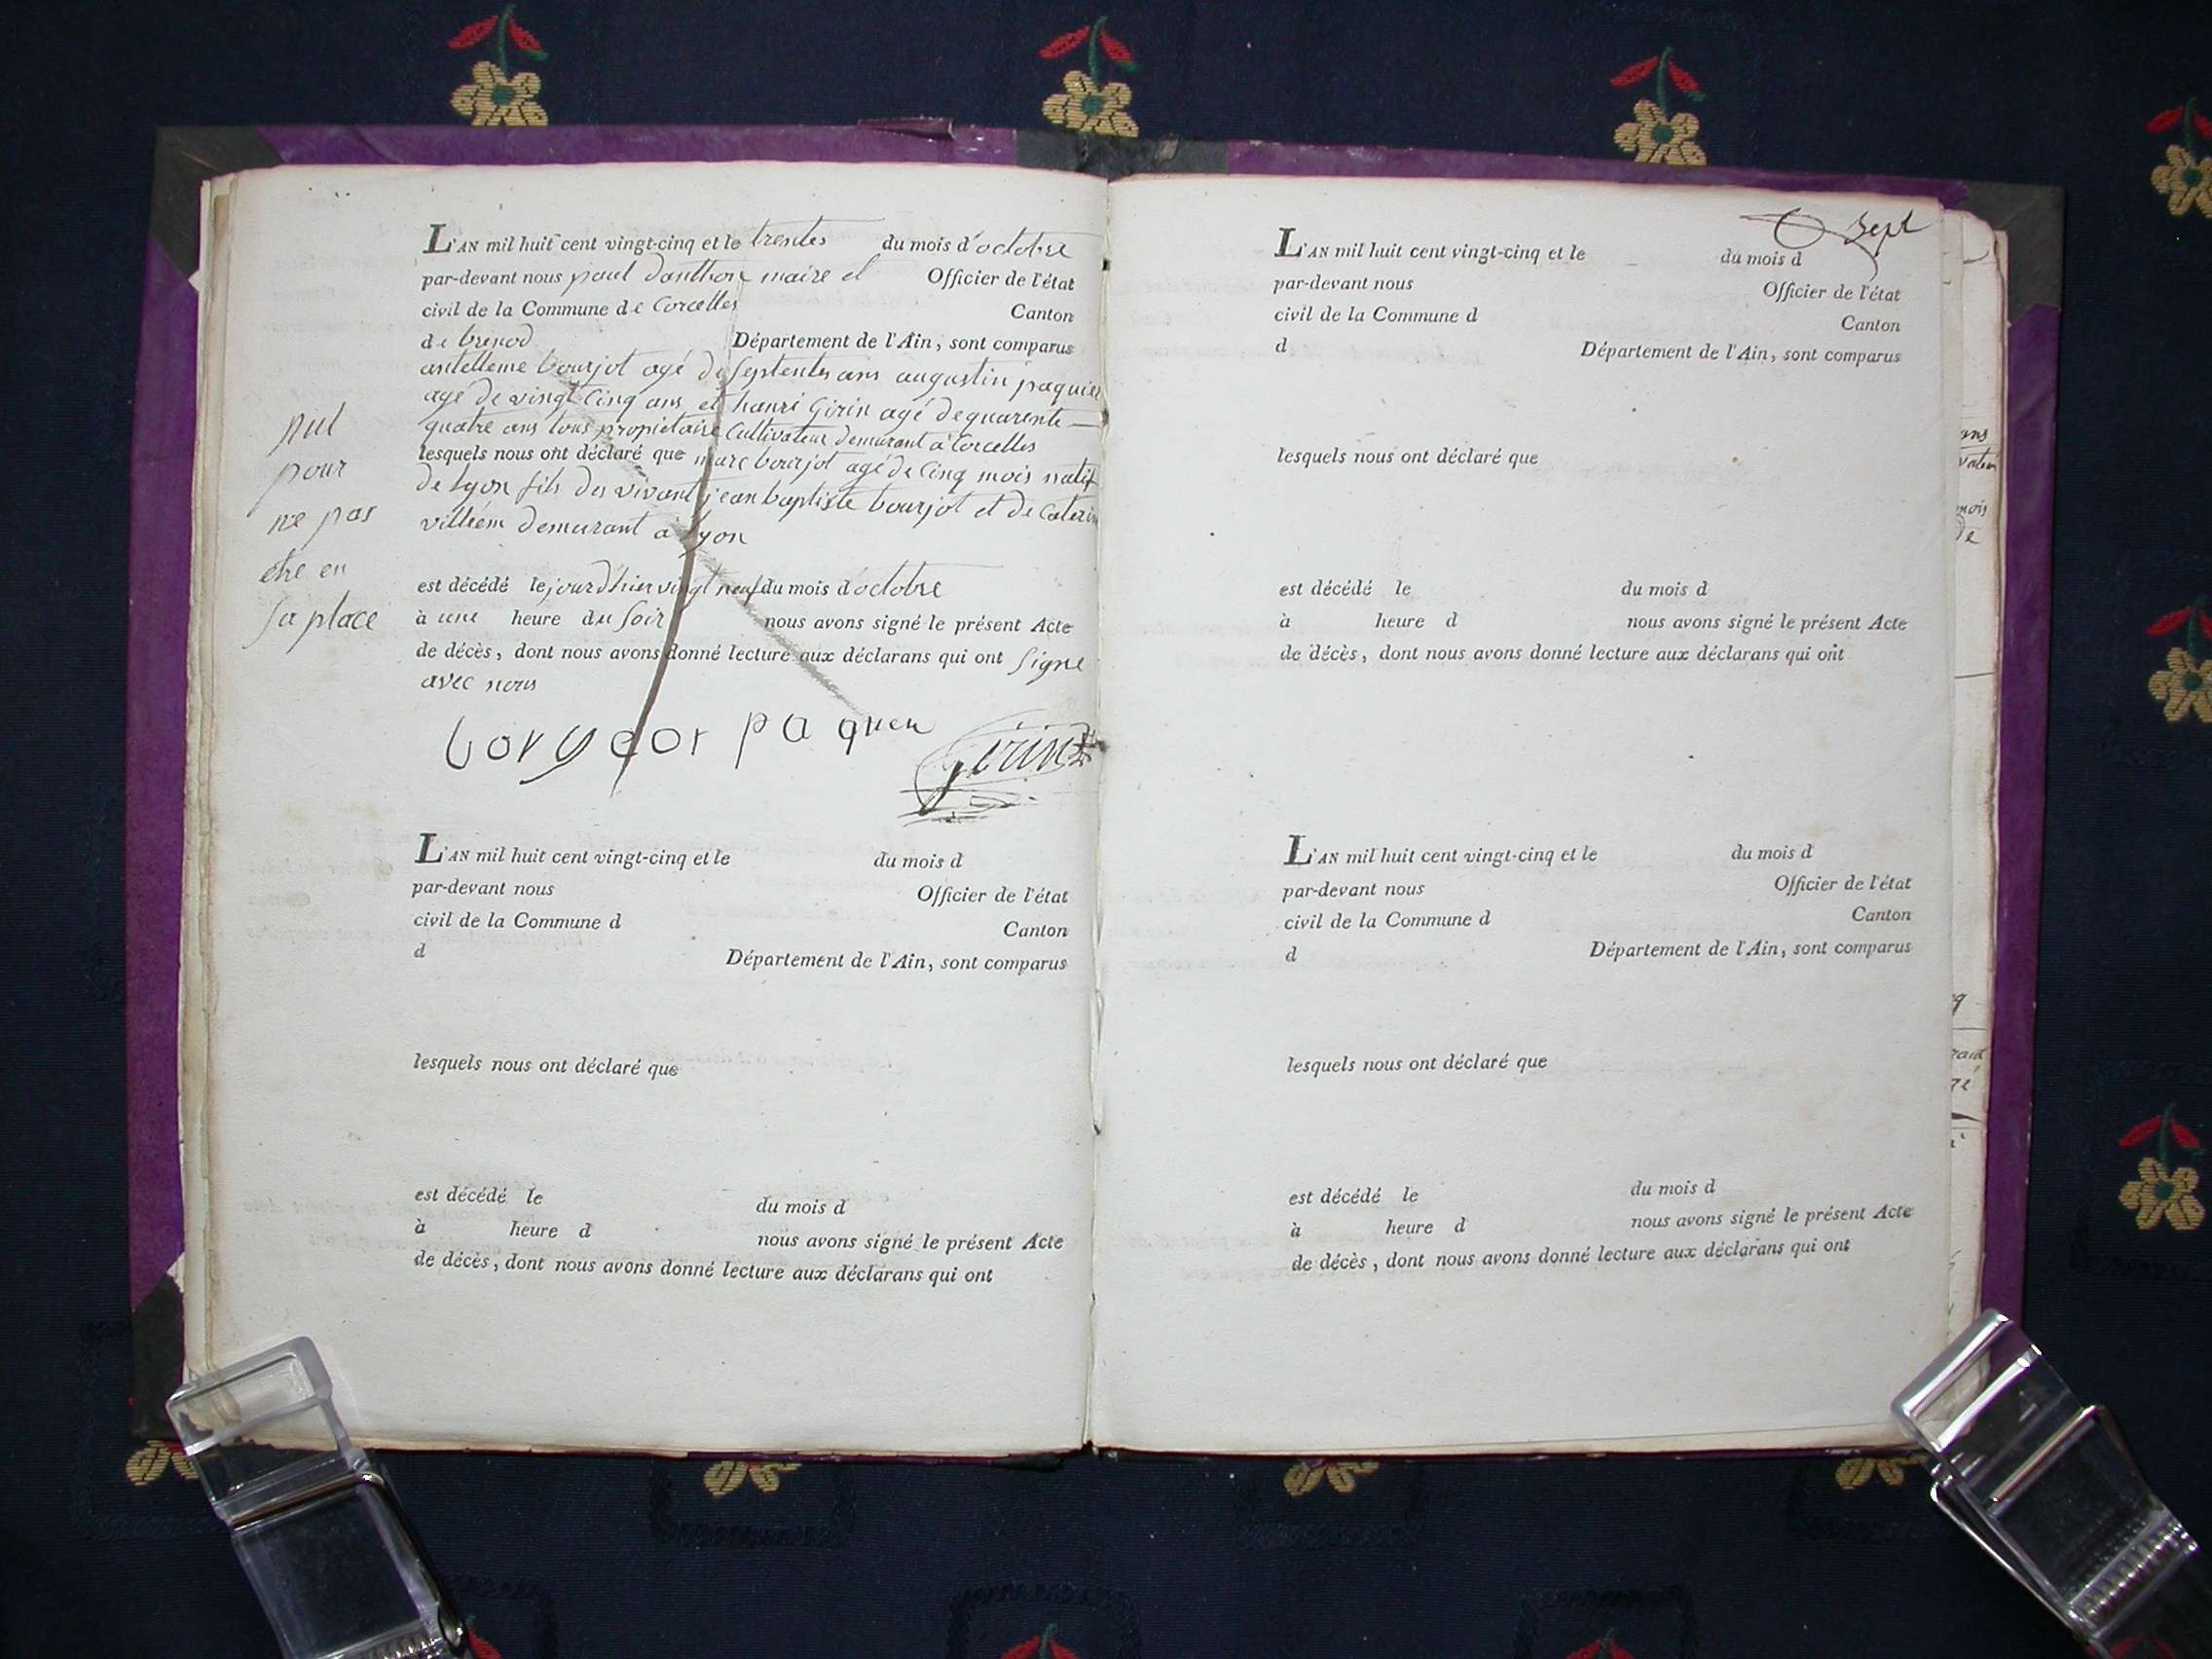 L'AN mil huit cent vingt-cinq et le trentes du mois d'octobre
par-devant nous paul Danthon maire et Officier de l'état
civil de la Commune de Corcelles Canton
de brenod Département de l'Ain, sont comparus
antelleme bourjot agé de septentes ans augustin paquier
agé de vingt Cinq ans et hanri Girin agé de quarente
quatre ans tous propietaire Cultivateur demurant à Corcelles
lesquels nous ont déclaré que marc bourjot agé de Cinq mois natif
de Lyon fils des vivant jean baptiste bourjot et de Caterin
demurant à Lyon
est décédé le jour d'hier vingt neuf du mois d'octobre
à une heure du soir nous avons signé le présent Acte
de décès, dont nous avons donné lecture aux déclarans qui ont signe
avec nous
nul
pour
ne pas
etre en
sa place
girin
L'AN mil huit cent vingt-cinq et le du mois d
par-devant nous Officier de l'état
civil de la Commune d Canton
d Département de l'Ain, sont comparus
lesquels nous ont déclaré que
est décédé le du mois d
à heure d nous avons signé le présent Acte
de décès, dont nous avons donné lecture aux déclarans qui ont
Sept
L'AN mil huit cent vingt-cinq et le du mois d
par-devant nous Officier de l'état
civil de la Commune d Canton
d Département de l'Ain, sont comparus
lesquels nous ont déclaré que
est décédé le du mois d
à heure d nous avons signé le présent Acte
de décès, dont nous avons donné lecture aux déclarans qui ont
L'AN mil huit cent vingt-cinq et le du mois d
par-devant nous Officier de l'état
civil de la Commune d Canton
d Département de l'Ain, sont comparus
lesquels nous ont déclaré que
est décédé le du mois d
à heure d nous avons signé le présent Acte
de décès, dont nous avons donné lecture aux déclarans qui ont